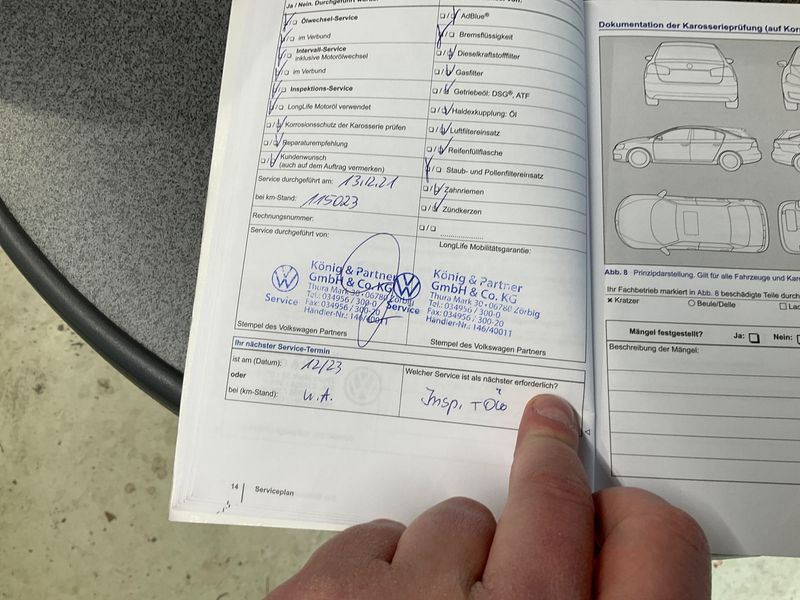 Ja / Nein.
Ölwechsel-Service
im Verbund
Intervall-Service
inklusive Motorölwechsel
im Verbund
Inspektions-Service
LongLife Motoröl verwendet
Korrosionsschutz der Karosserie prüfen
Reparaturempfehlung
Kundenwunsch
(auch auf dem Auftrag vermerken)
Service durchgeführt am: 13.12.21
bei km-Stand: 115023
Rechnungsnummer:
Service durchgeführt von:
AdBlue®
Bremsflüssigkeit
Dieselkraftstofffilter
Gasfilter
Getriebeöl: DSG®, ATF
Haldexkupplung: Öl
Luftfiltereinsatz
Reifenfüllflasche
Staub- und Pollenfiltereinsatz
Zahnriemen
Zündkerzen
LongLife Mobilitätsgarantie:
König & Partner
GmbH & Co. KG
Thura Mark 30 · 06780 Zörbig
Tel.: 034956 / 300-0
Fax: 034956 / 300-20
Händler-Nr.: 146/40011
Service
König & Partner
GmbH & Co. KG
Thura Mark 30 · 06780 Zörbig
Tel.: 034956 / 300-0
Fax: 034956 / 300-20
Händler-Nr.: 146/40011
Service
Stempel des Volkswagen Partners
Stempel des Volkswagen Partners
Ihr nächster Service-Termin
ist am (Datum): 12/23
oder
bei (km-Stand): W.A.
Welcher Service ist als nächster erforderlich?
Insp. +
14 Serviceplan
Dokumentation der Karosserieprüfung (auf
Abb. 8 Prinzipdarstellung. Gilt für alle Fahrzeuge und
Ihr Fachbetrieb markiert in Abb. 8 beschädigte Teile durch
Kratzer Beule/Delle
Mängel festgestellt? Ja: Nein:
Beschreibung der Mängel: